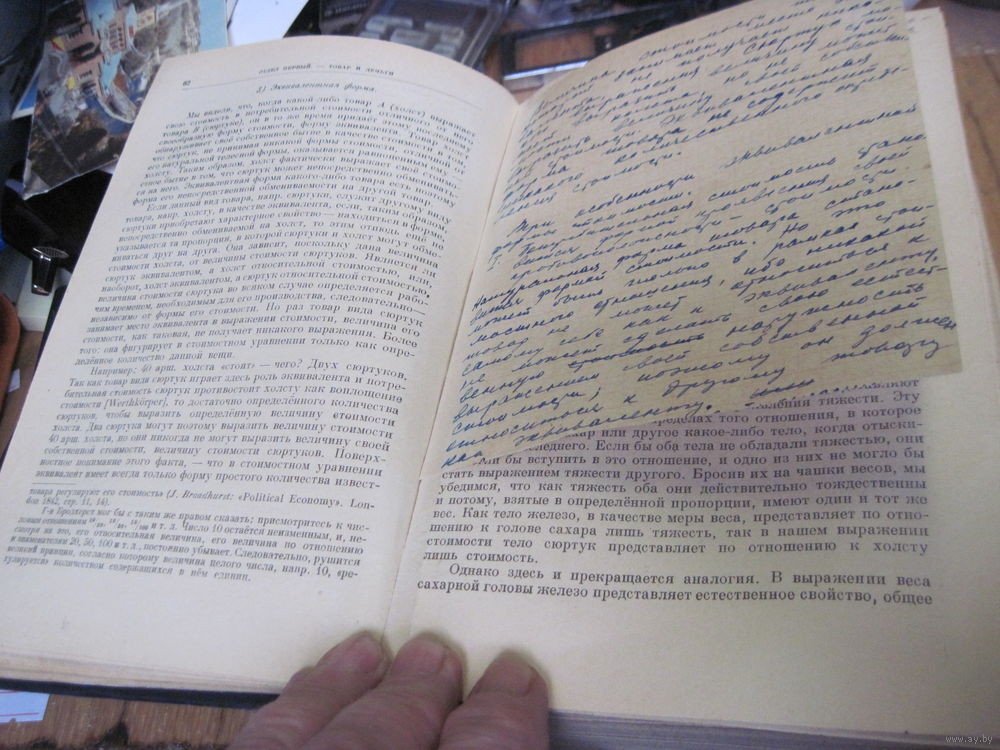 62
ОТДЕЛ ПЕРВЫЙ. — ТОВАР И ДЕНЬГИ
3) Эквивалентная форма.
Мы видели, что, когда какой-либо товар A (холст) выражает
свою стоимость в потребительной стоимости отличного от него
товара B (сюртуке), он в то же время придаёт этому последнему
своеобразную форму стоимости, форму эквивалента. Товар холст
обнаруживает своё собственное бытие в качестве стоимости тем,
что сюртук, не принимая никакой формы стоимости, отличной от
его натуральной телесной формы, оказывается равнозначным
холсту. Таким образом, холст фактически выражает своё стоимо-
стное бытие в том, что сюртук может непосредственно обмениваться
на него. Эквивалентная форма какого-либо товара есть поэтому
форма его непосредственной обмениваемости на другой товар.
Если данный вид товара, напр. сюртуки, служит другому виду
товара, напр. холсту, в качестве эквивалента, если, таким образом,
сюртуки приобретают характерное свойство — находиться в форме,
непосредственно обмениваемой на холст, то этим отнюдь ещё не
указывается та пропорция, в которой сюртуки и холст могут обмени-
ваться друг на друга. Она зависит, поскольку дана величина
стоимости холста, от величины стоимости сюртуков. Является ли
сюртук эквивалентом, а холст относительной стоимостью, или,
наоборот, холст эквивалентом, а сюртук относительной стоимостью,
величина стоимости сюртука во всяком случае определяется рабо-
чим временем, необходимым для его производства, следовательно —
независимо от формы его стоимости. Но раз товар вида сюртук
занимает место эквивалента в выражении стоимости, величина его
стоимости, как таковая, не получает никакого выражения. Более
того: она фигурирует в стоимостном уравнении только как опре-
делённое количество данной вещи.
Например: 40 арш. холста «стоят» — чего? Двух сюртуков.
Так как товар вида сюртук играет здесь роль эквивалента и потре-
бительная стоимость сюртук противостоит холсту как воплощение
стоимости [Wertkörper], то достаточно определённого количества
сюртуков, чтобы выразить определённую величину стоимости
холста. Два сюртука могут поэтому выразить величину стоимости
40 арш. холста, но они никогда не могут выразить величину своей
собственной стоимости, величину стоимости сюртуков. Поверх-
ностное понимание этого факта, — что в стоимостном уравнении
эквивалент имеет всегда только форму простого количества извест-
товара регулируют его стоимость» (J. Broadhurst: «Political Economy». Lon-
don 1842, стр. 11, 14).
Г-н Бродхерст мог бы с таким же правом сказать: присмотритесь к чис-
ловым отношениям 10/20, 10/50, 10/100 и т. д. Число 10 остаётся неизменным, и, не-
смотря на это, его относительная величина, его величина по отношению
к знаменателям 20, 50, 100 и т. д., постоянно убывает. Следовательно, рушится
великий принцип, согласно которому величина целого числа, напр. 10, «ре-
гулируется» количеством содержащихся в нём единиц.
Три особенности эквивалентной
формы стоимости.
I. Потребительная стоимость стано-
вится формой проявления своей
противоположности — стоимости.
Натуральная форма товара стано-
вится формой стоимости. Но это
может быть только в рамках стои-
мостного отношения, ибо никакой
товар не может относиться к
самому себе как к эквиваленту,
не может сделать свою естест-
венную наружность
выражением своей собственной
стоимости, поэтому он должен
относиться к другому товару
как эквиваленту.
тяжести. Эту
пределах того отношения, в которое
сахар или другое какое-либо тело, когда отыски-
последнего. Если бы оба тела не обладали тяжестью, они
не могли бы вступить в это отношение, и одно из них не могло бы
стать выражением тяжести другого. Бросив их на чашки весов, мы
убедимся, что как тяжесть оба они действительно тождественны
и потому, взятые в определённой пропорции, имеют один и тот же
вес. Как тело железо, в качестве меры веса, представляет по отно-
шению к голове сахара лишь тяжесть, так в нашем выражении
стоимости тело сюртук представляет по отношению к холсту
лишь стоимость.
Однако здесь и прекращается аналогия. В выражении веса
сахарной головы железо представляет естественное свойство, общее
www.ay.by